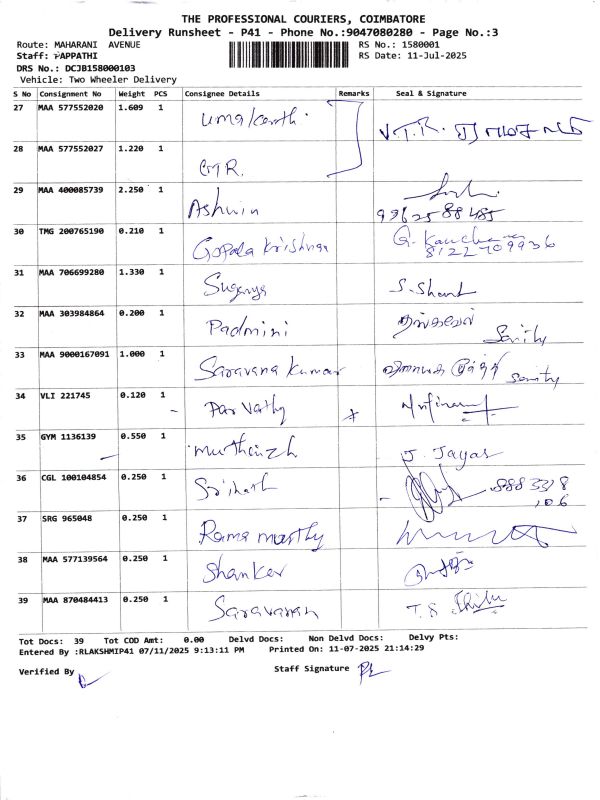 THE PROFESSIONAL COURIERS, COIMBATORE
Delivery Runsheet - P41 - Phone No.:9047080280 - Page No.:3
Route: MAHARANI AVENUE RS No.: 1580001
Staff: PAPPATHI RS Date: 11-Jul-2025
DRS No.: DCJB158000103
Vehicle: Two Wheeler Delivery
S No Consignment No Weight PCS Consignee Details Remarks Seal & Signature
27 MAA 577552020 1.609 1 Umakanth.
28 MAA 577552027 1.220 1 V.T.R.
29 MAA 400085739 2.250 1 Ashwin
99625 88485
30 TMG 200765190 0.210 1 Gopala Krishnan
8122709936
31 MAA 706699280 1.330 1 Suganya S. Shant
32 MAA 303984864 0.200 1 Padmini தங்கவேல்
33 MAA 9000167091 1.000 1 Saravana Kumar
34 VLI 221745 0.120 1 Parvathy
35 GYM 1136139 0.550 1 J. Jayas
36 CGL 100104854 0.250 1 Srihath
37 SRG 965048 0.250 1 Rama murthy
38 MAA 577139564 0.250 1 Shanker
39 MAA 870484413 0.250 1 Saravanan T. S
Tot Docs: 39 Tot COD Amt: 0.00 Delvd Docs: Non Delvd Docs: Delvy Pts:
Entered By :RLAKSHMIP41 07/11/2025 9:13:11 PM Printed On: 11-07-2025 21:14:29
Verified By Staff Signature